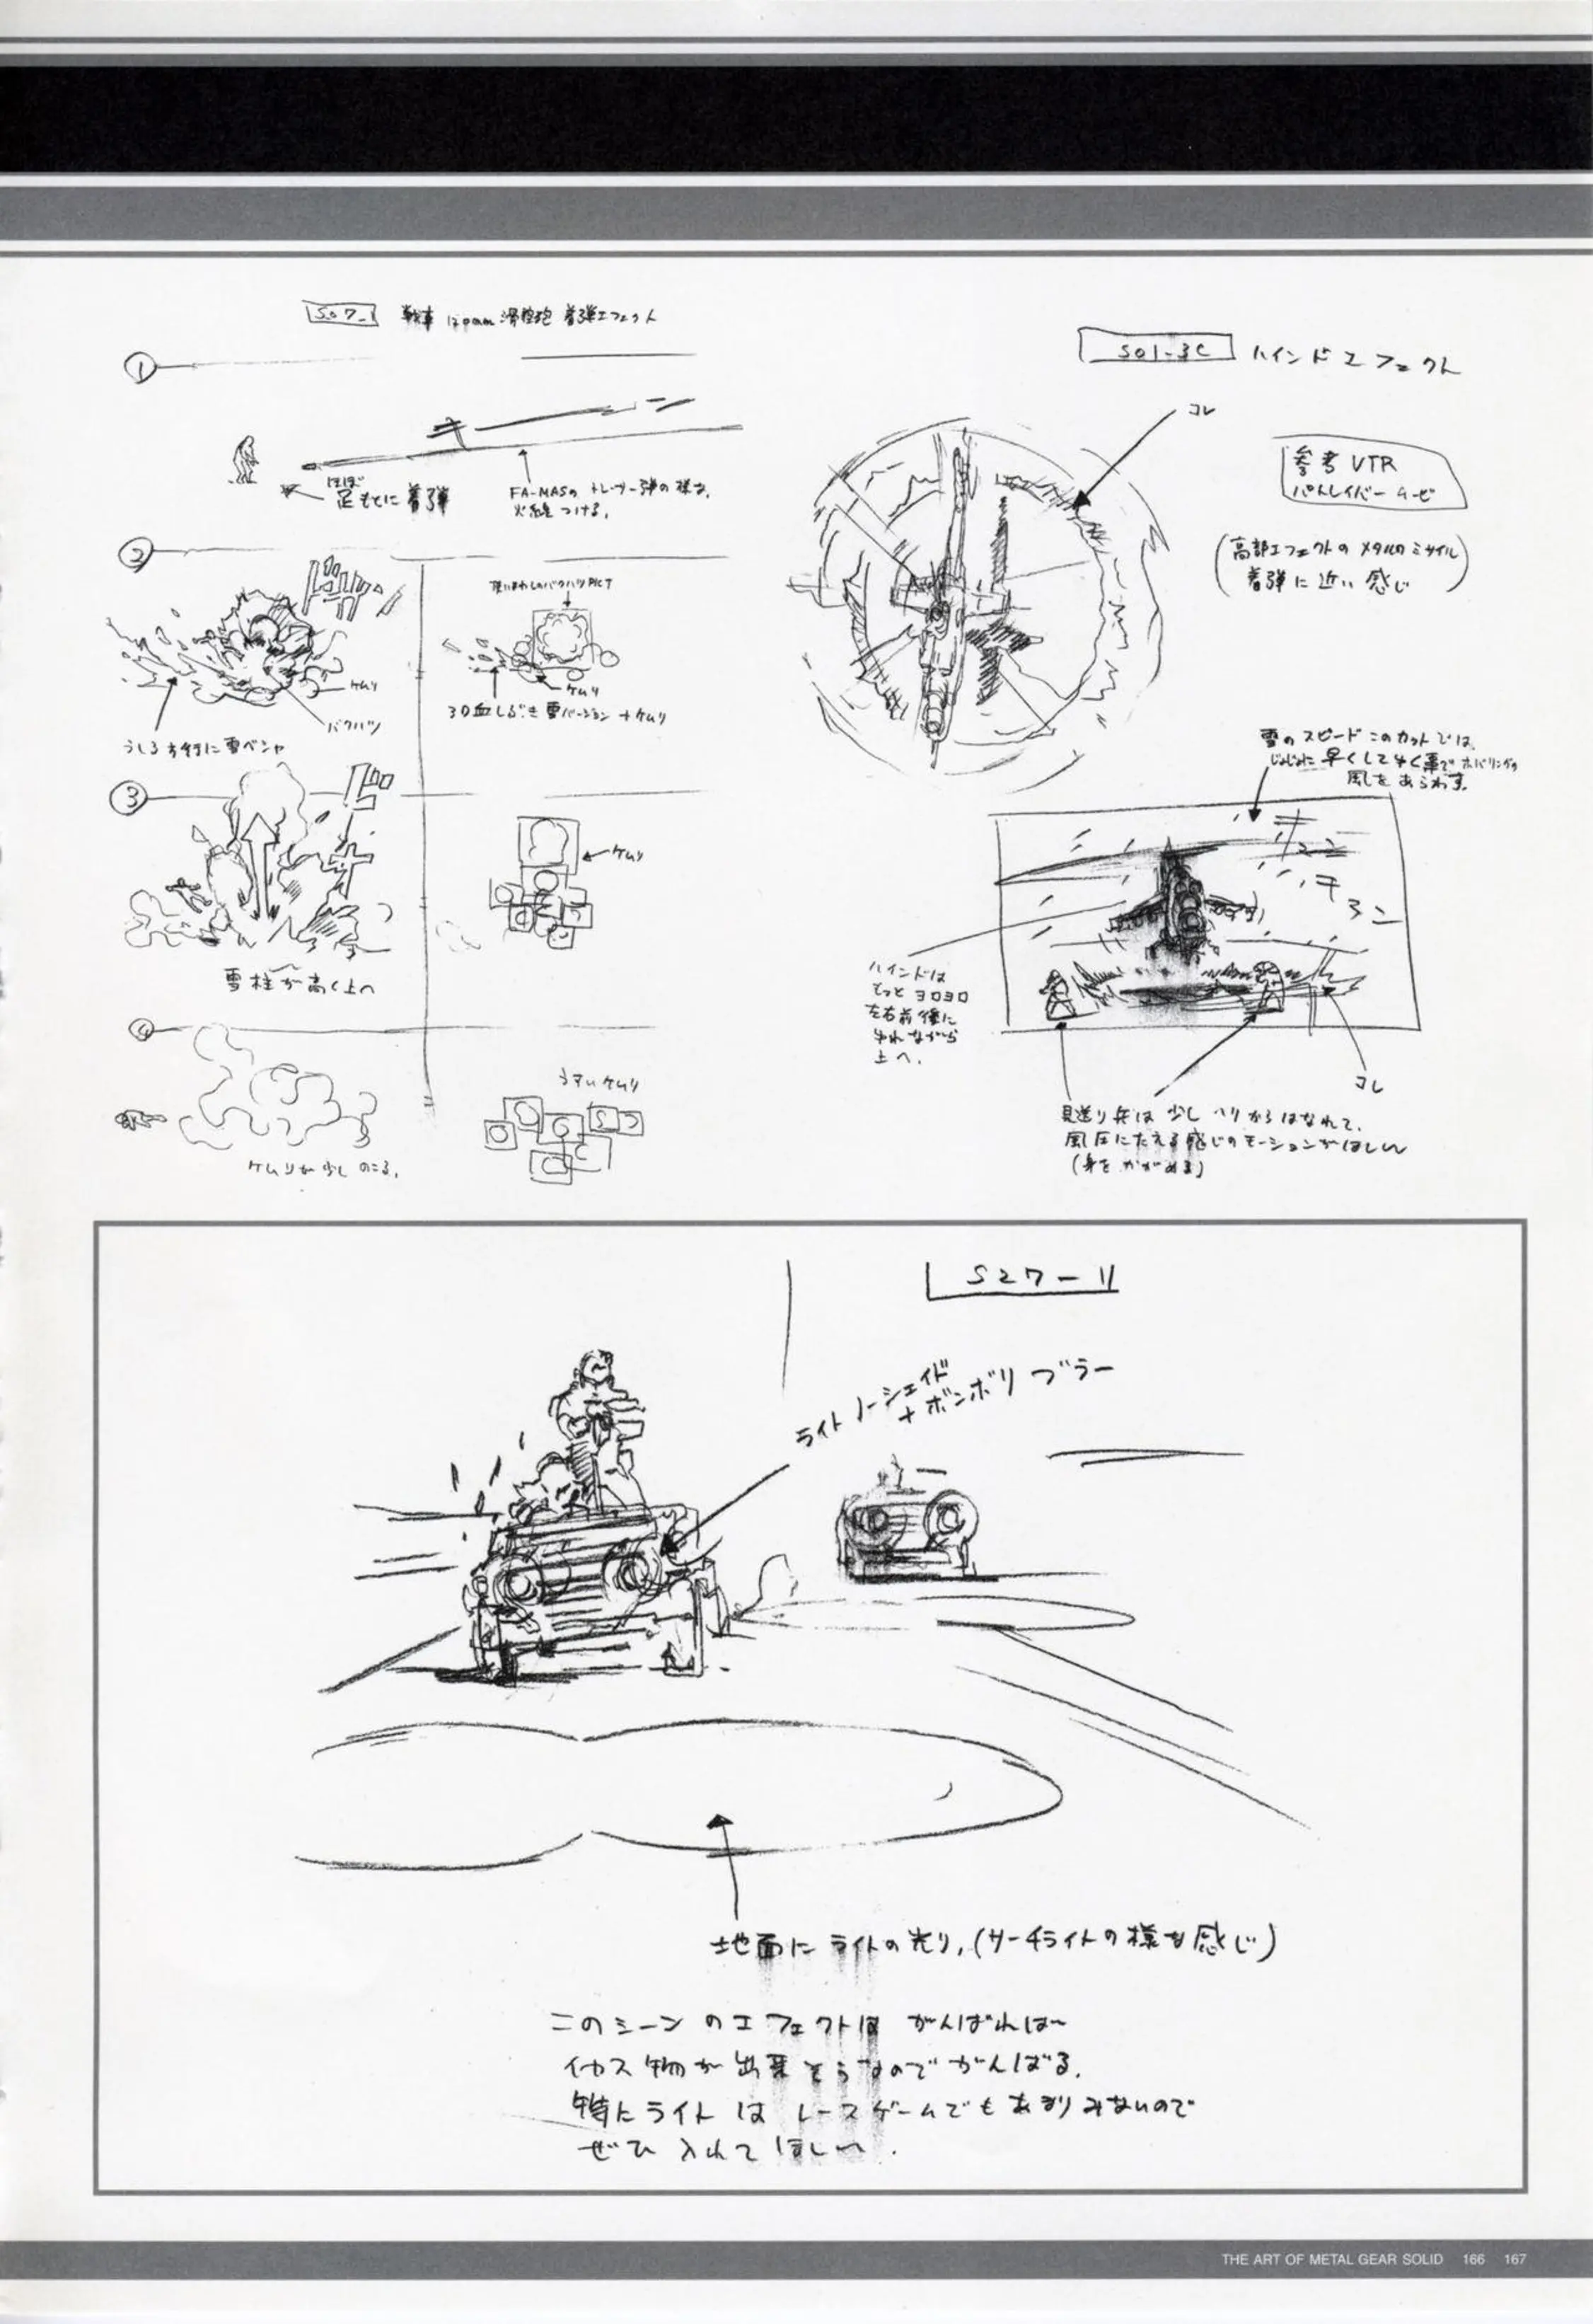 S07-1 戦車 120mm 滑腔砲 着弾エフェクト
①
キーン
ほぼ
足もとに着弾
FA-MASの トレーサー弾の様な、
火線をつける。
②
ドガガ
ケムリ
バクハツ
うしろ方行に雪ベシャ
使いまわしのバクハツPICT
ケムリ
3D血しぶき 雪バージョン + ケムリ
③
ドド
ケムリ
雪柱が高く上へ
④
うすいケムリ
ケムリが少しのこる。
S01-3C ハインドエフェクト
コレ
参考 VTR
パトレイバームービ
(高部エフェクトの メタルのミサイル
着弾に近い感じ)
雪のスピード このカットでは、
じょじょに早くして ホバリングの
風をあらわす。
ハインドは
もっとヨロヨロ
左右前後に
ゆれながら
上へ。
コレ
見送り兵は少し ヘリからはなれて、
風圧にたえる感じのモーションがほしい
(身をかがめる)
S27-11
ライト ノーシェイド
+ ボンボリ ブラー
地面にライトの光り、(サーチライトの様な感じ)
このシーンのエフェクトは がんばれば
イカス物が出来そうなのでがんばる。
特にライトは レースゲームでもあまりみないので
ぜひ 入れてほしい。
THE ART OF METAL GEAR SOLID 166 167